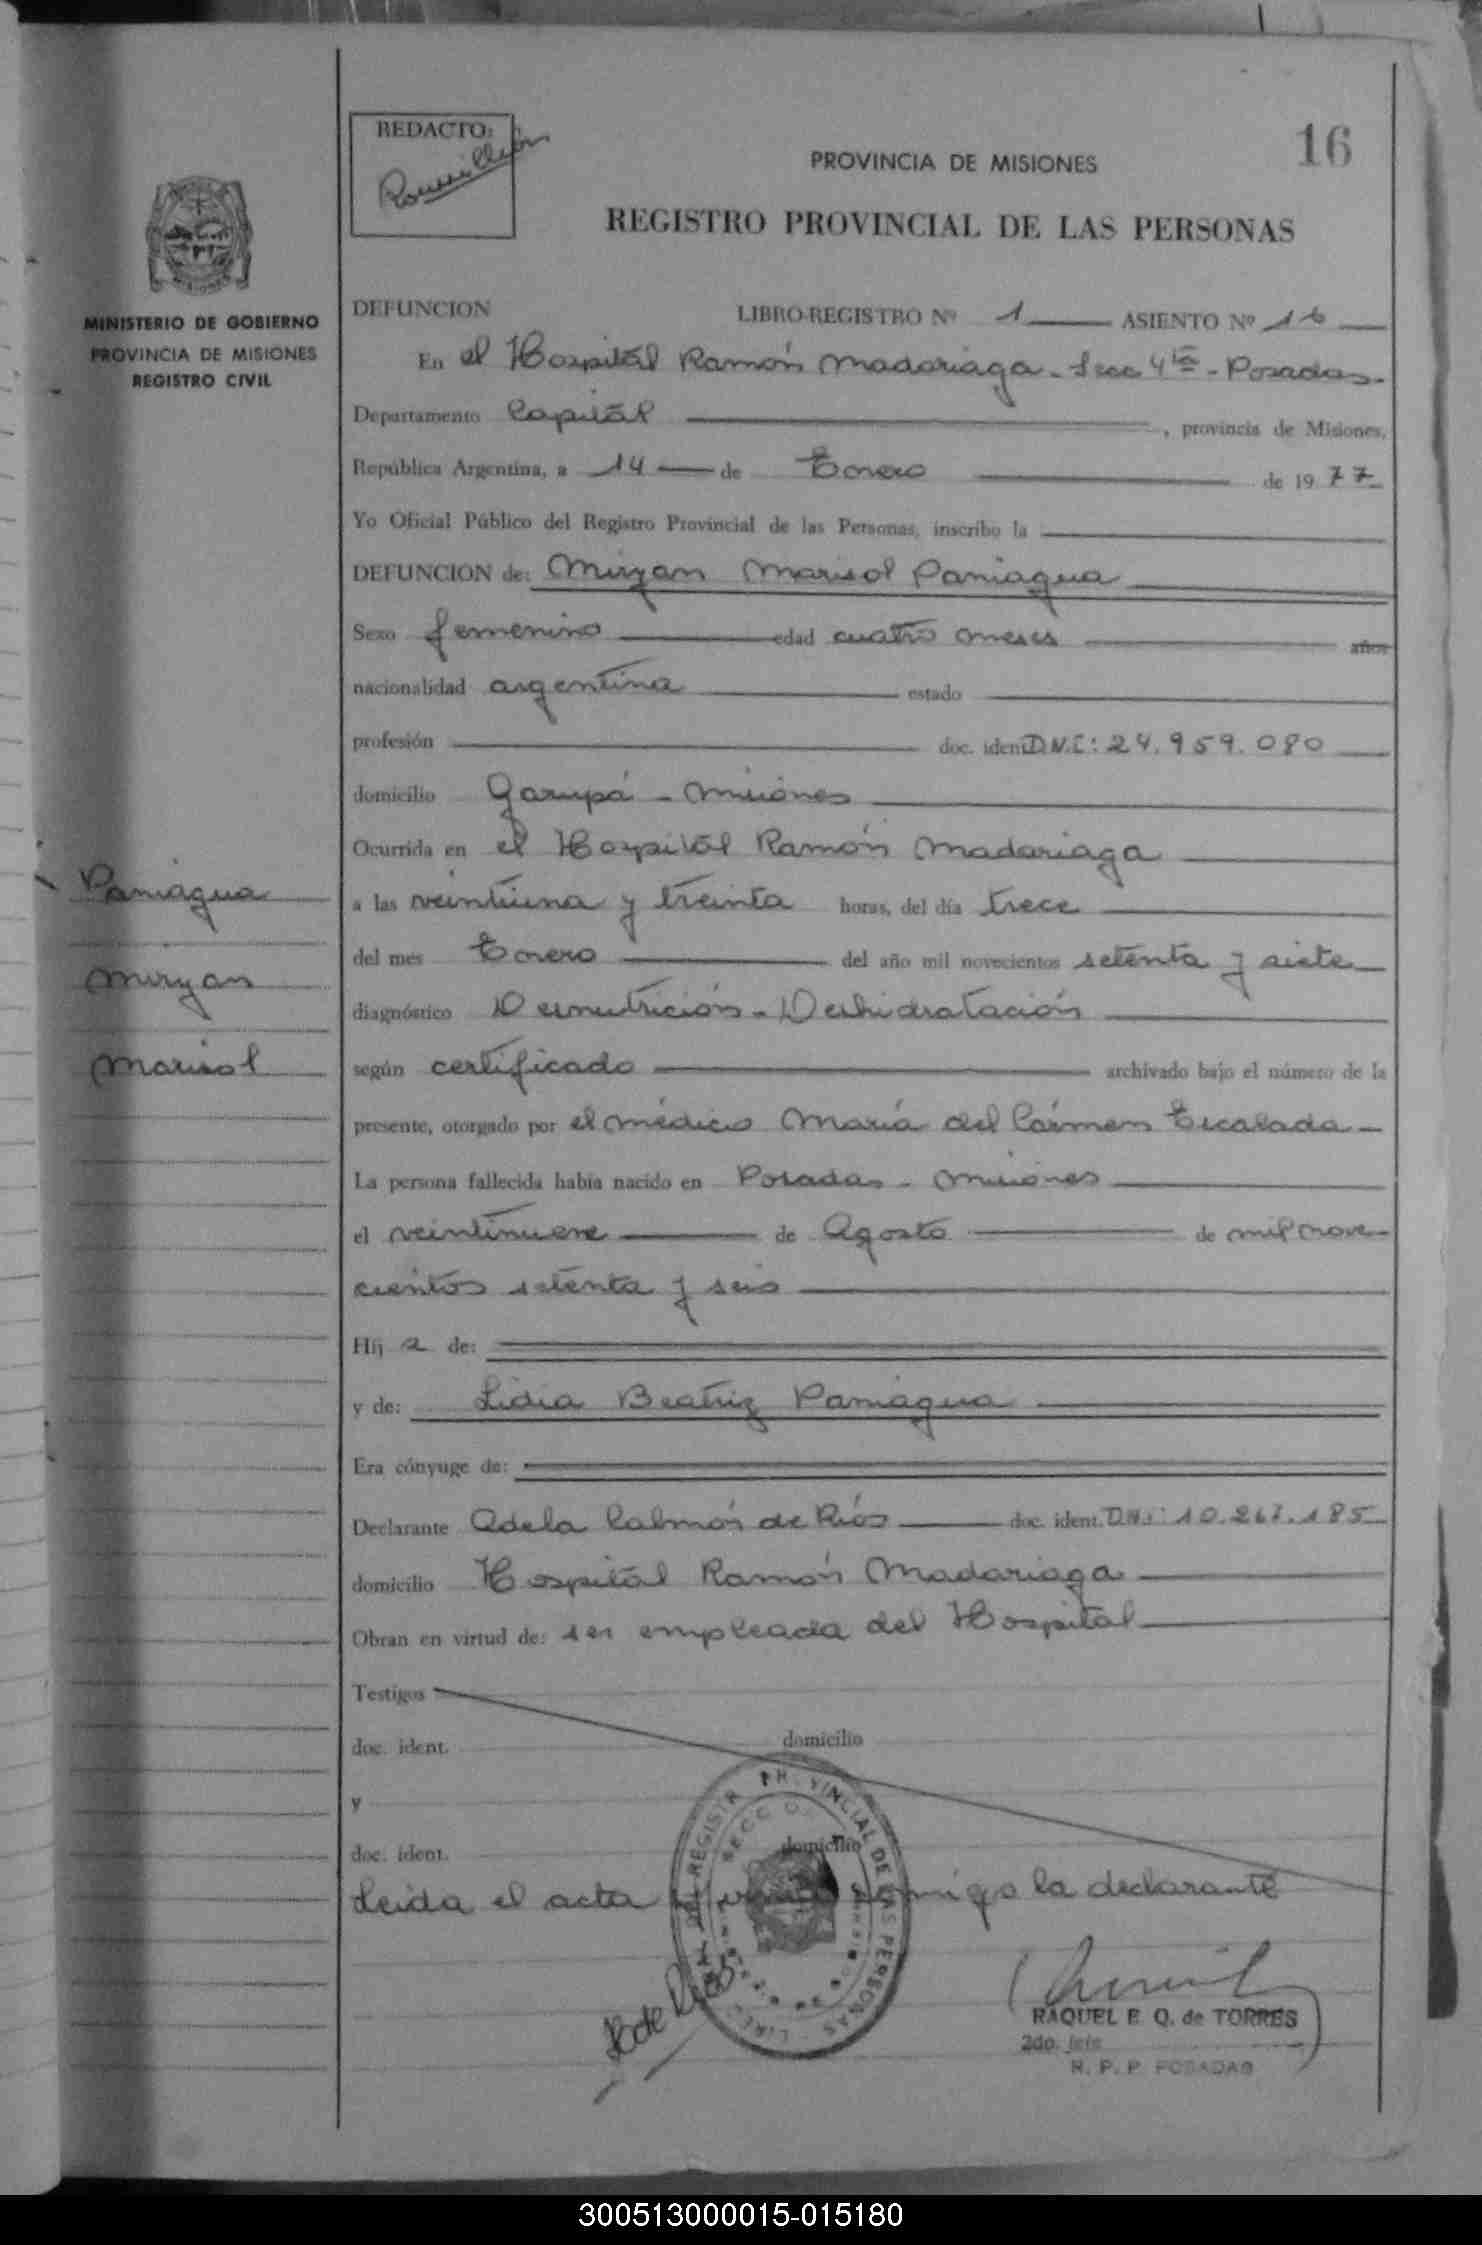 REDACTO:
16
PROVINCIA DE MISIONES
REGISTRO PROVINCIAL DE LAS PERSONAS
MINISTERIO DE GOBIERNO
PROVINCIA DE MISIONES
REGISTRO CIVIL
DEFUNCION LIBRO-REGISTRO Nº 1 ASIENTO Nº 16
En el Hospital Ramón Madariaga - Secc 4ta - Posadas -
Departamento Capital , provincia de Misiones,
República Argentina, a 14 de Enero de 1977
Yo Oficial Público del Registro Provincial de las Personas, inscribo la
DEFUNCION de: Miryan Marisol Paniagua
Sexo femenino edad cuatro meses años
nacionalidad argentina estado
profesión doc. ident D.N.I: 24.959.080
domicilio Garupá - Misiones
Ocurrida en el Hospital Ramón Madariaga
a las veintiuna y treinta horas, del día trece
del mes Enero del año mil novecientos setenta y siete
diagnóstico Desnutrición - Deshidratación
según certificado archivado bajo el número de la
presente, otorgado por el médico María del Cármen Escalada -
La persona fallecida había nacido en Posadas - Misiones
el veintinueve de Agosto de mil nove-
cientos setenta y seis
Hij a de:
y de: Lidia Beatriz Paniagua
Era cónyuge de:
Declarante Adela Calmón de Ríos doc. ident. D.N.I: 10.267.185
domicilio Hospital Ramón Madariaga
Obran en virtud de: ser empleada del Hospital
Testigos
doc. ident. domicilio
y
doc. ident. domicilio
Leida el acta firma conmigo la declarante
Paniagua
Miryan
Marisol
RAQUEL E. Q. de TORRES
2do. Jefe
R. P. P. POSADAS
300513000015-015180